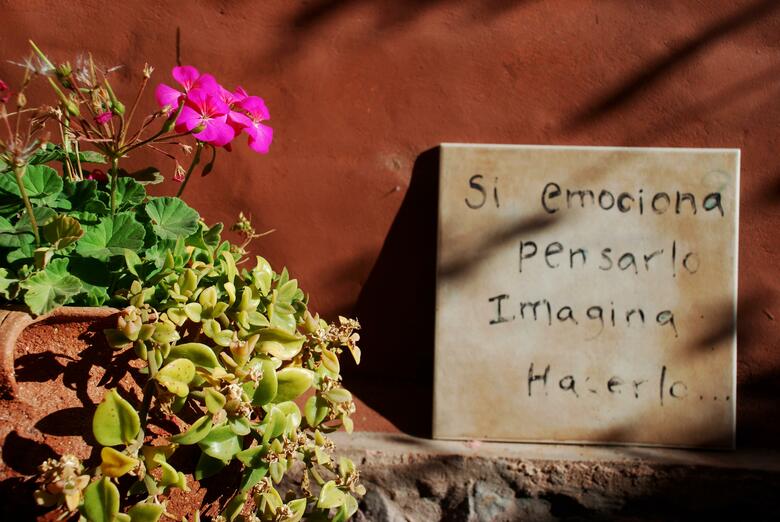 Si emociona
Pensarlo
Imagina
Hacerlo...